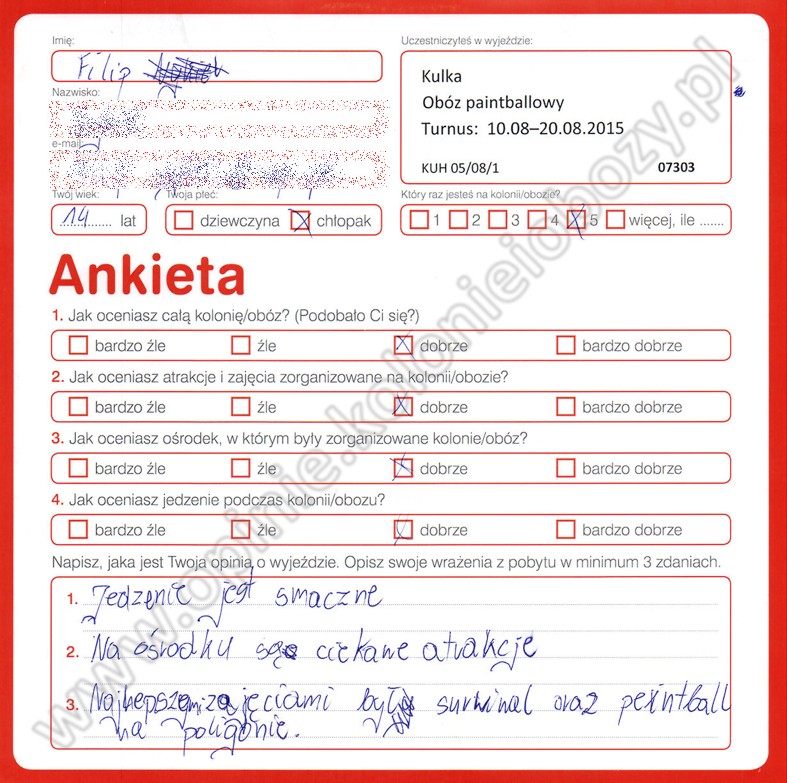 Imię:
Filip
Uczestniczyłeś w wyjeździe:
Kulka
Obóz paintballowy
Turnus: 10.08–20.08.2015
KUH 05/08/1 07303
Nazwisko:
e-mail:
Twój wiek:
14 lat
Twoja płeć:
dziewczyna chłopak
Który raz jesteś na kolonii/obozie?
1 2 3 4 5 więcej, ile .......
Ankieta
1. Jak oceniasz całą kolonię/obóz? (Podobało Ci się?)
bardzo źle źle dobrze bardzo dobrze
2. Jak oceniasz atrakcje i zajęcia zorganizowane na kolonii/obozie?
bardzo źle źle dobrze bardzo dobrze
3. Jak oceniasz ośrodek, w którym były zorganizowane kolonie/obóz?
bardzo źle źle dobrze bardzo dobrze
4. Jak oceniasz jedzenie podczas kolonii/obozu?
bardzo źle źle dobrze bardzo dobrze
Napisz, jaka jest Twoja opinia o wyjeździe. Opisz swoje wrażenia z pobytu w minimum 3 zdaniach.
1. Jedzenie jest smaczne
2. Na ośrodku są ciekawe atrakcje
3. Najlepszemi zajęciami były surwiwal oraz peintball
na poligonie.
www.opinie.kolonieiobozy.pl